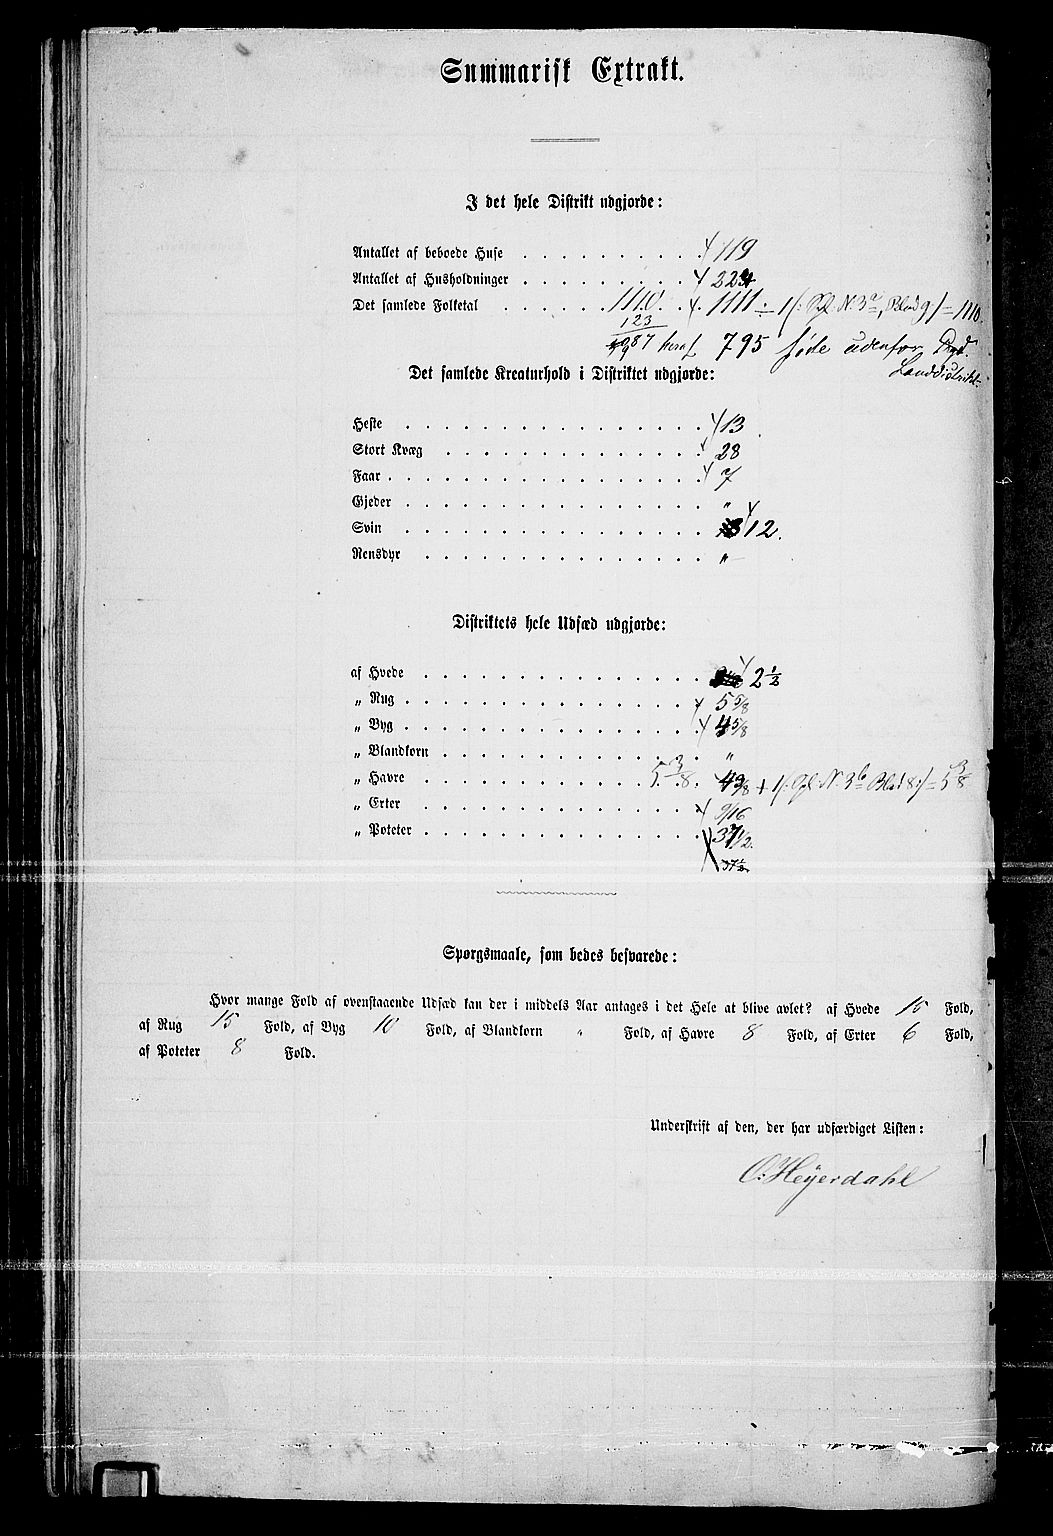 Summarisk Extrakt.
I det hele Distrikt udgjorde:
Antallet af beboede Huse . . . . . . . . . . 119
Antallet af Husholdninger . . . . . . . . . . 224
Det samlede Folketal . . . . . 1110. 1111 ÷ 1 /: Spl N. 3a, Blad 9 :/ = 1110.
123
987 heraf 795 føde udenfor Bygd.
Landdistrikt.
Det samlede Kreaturhold i Distriktet udgjorde:
Heste . . . . . . . . . . . . . . . . 13
Stort Kvæg . . . . . . . . . . . . . . 28
Faar . . . . . . . . . . . . . . . . . 7
Gjeder . . . . . . . . . . . . . . . . "
Svin . . . . . . . . . . . . . . . . 12.
Rensdyr . . . . . . . . . . . . . . . "
Distriktets hele Udsæd udgjorde:
af Hvede . . . . . . . . . . . . . . . 2 1/2
„ Rug . . . . . . . . . . . . . . . . 5 5/8
„ Byg . . . . . . . . . . . . . . . . 4 5/8
„ Blandkorn . . . . . . . . . . . . . . "
„ Havre . . . . . . . . . . . . 5 3/8. 4 3/8 + 1 /: Spl. N. 3b Blad 8 :/ = 5 3/8
„ Erter . . . . . . . . . . . . . . . 9/16
„ Poteter . . . . . . . . . . . . . . . 37 1/2.
37 1/2
Spørgsmaale, som bedes besvarede:
Hvor mange Fold af ovenstaaende Udsæd kan der i middels Aar antages i det Hele at blive avlet? af Hvede 10 Fold,
af Rug 15 Fold, af Byg 10 Fold, af Blandkorn " Fold, af Havre 8 Fold, af Erter 6 Fold,
af Poteter 8 Fold.
Underskrift af den, der har udfærdiget Listen:
O. Heyerdahl